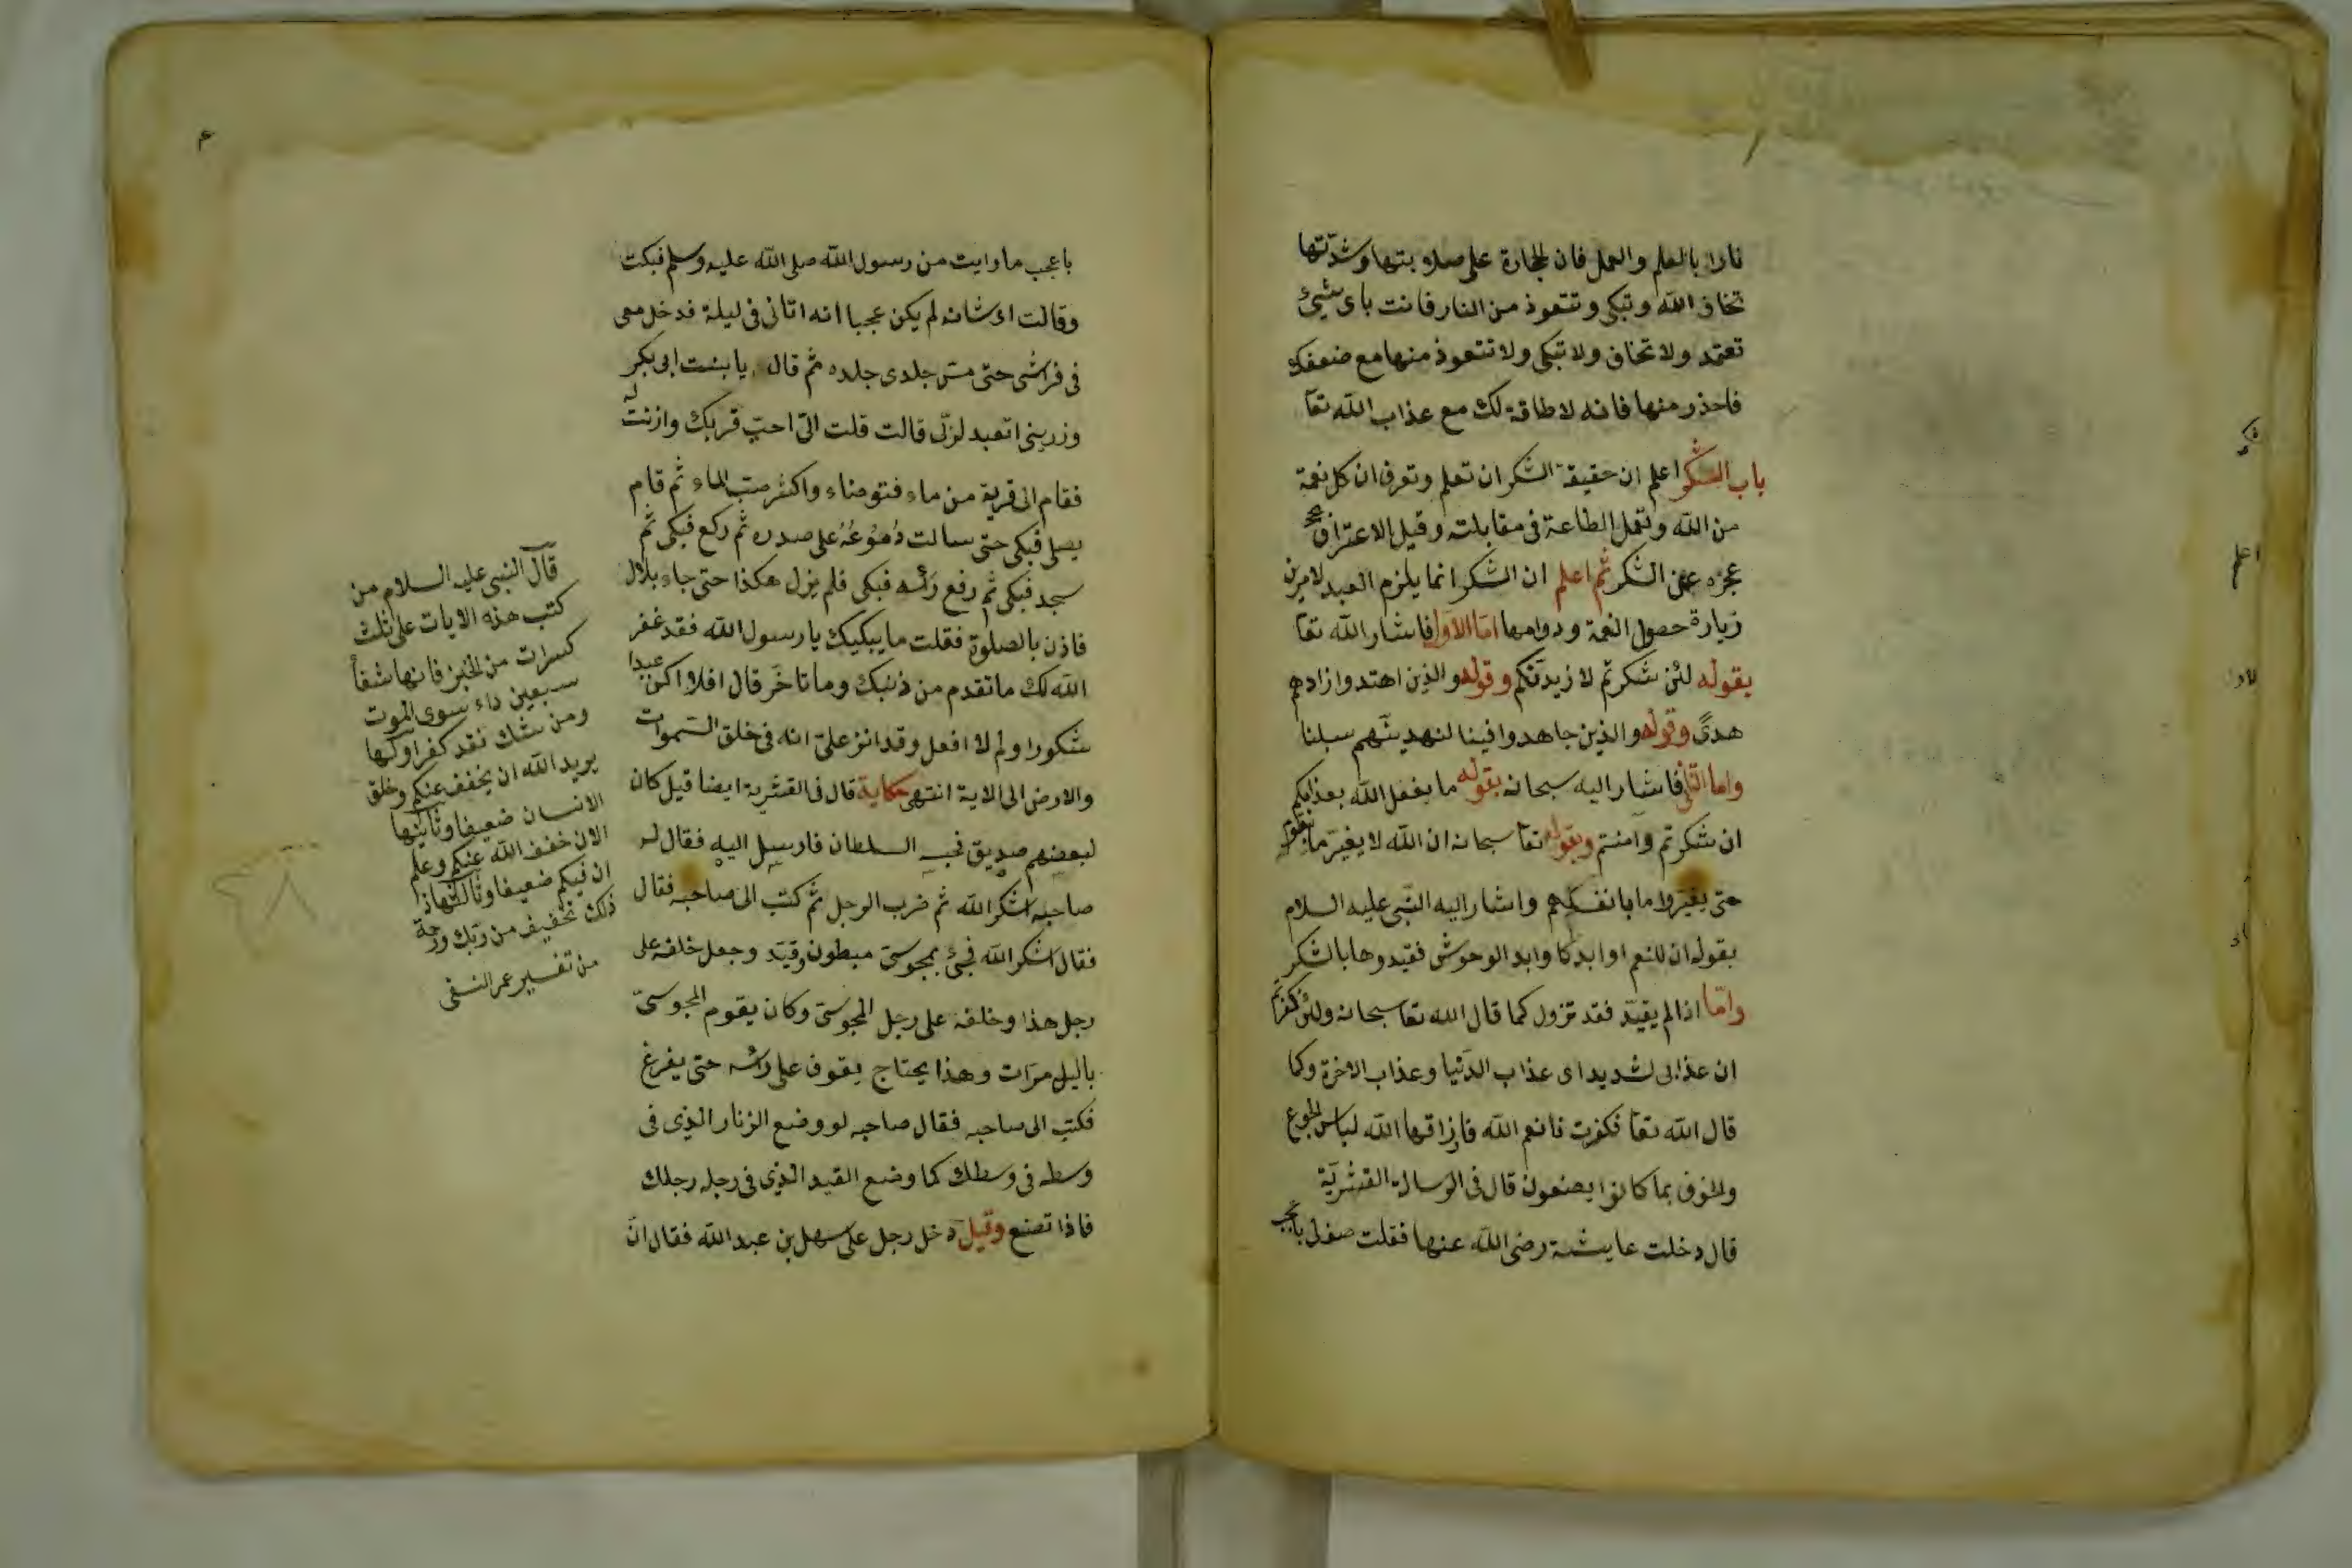 نارا بالعلم والعمل فان الحجارة على صلابتها وشدّتها
تخاف الله وتبكى وتتعوذ من النار فانت باى شيئ
تعتمد ولا تخاف ولا تبكى ولا تتعوذ منها مع ضعفك
فاحذر منها فانه لا طاقة لك مع عذاب الله تعا
باب الشكر اعلم ان حقيقة الشكر ان تعلم وتعرف ان كل نعمة
من الله وتعمل الطاعة فى مقابلته وقيل الاعتراف
عجزه عن الشكر ثم اعلم ان الشكر انما يلزم العبد لامرين
زيارة حصول النعمة ودوامها امّا الاوّل فاشار الله تعا
بقوله لئن شكرتم لازيدنّكم وقوله والذين اهتدوا زادهم
هدىً وقوله والذين جاهدوا فينا لنهدينّهم سبلنا
واما الثانى فاشار اليه سبحانه بقوله ما يفعل الله بعذابكم
ان شكرتم وآمنتم وبقوله تعا سبحانه ان الله لا يغيّر ما بقوم
حتى يغيّروا ما بانفسهم واشار اليه النّبى عليه السلام
بقوله ان للنعم اوابد كاوابد الوحوش فقيدوها بالشكر
وامّا اذا لم يقيّد فقد تزول كما قال الله تعا سبحانه ولئن كفرتم
ان عذابى لشديد اى عذاب الدّنيا وعذاب الاخرة وكما
قال الله تعا فكفرت بانعم الله فاذاقها الله لباس الجوع
والخوف بما كانوا يصنعون قال فى الرسالة القشريّة
قال دخلت عايشة رضى الله عنها فقلت صفى باعجب
باعجب ما رايت من رسول الله صلى الله عليه وسلم فبكت
وقالت اى شانه لم يكن عجبا انه اتانى فى ليلة فدخل معى
فى فراشى حتى مسّ جلدى جلده ثم قال يا بنت ابى بكر
وزرينى اتعبد لربّى قالت قلت انّى احبّ قربك واذنت له
فقام الى قربة من ماء فتوضاء واكثر صبّ الماء ثم قام
يصلى فبكى حتى سالت دُمُوعُهُ على صدره ثم ركع فبكى ثم
سجد فبكى ثم رفع رأسه فبكى فلم يزل هكذا حتى جاء بلال
فاذن بالصلوة فقلت ما يبكيك يا رسول الله فقد غفر
الله لك ما تقدم من ذنبك وما تاخّر قال افلا اكن عبدا
شكورا ولم لا افعل وقد انزل علىّ انه فى خلق السّموات
والارض الى الاية انتهى حكاية قال فى القشرية ايضا قيل كان
لبعضهم صديق فحبسه السلطان فارسل اليه فقال له
صاحبه اشكر الله ثم ضرب الرجل ثم كتب الى صاحبه فقال
فقال اشكر الله فجئ بمجوسىّ مبطون وقيّد وجعل خلفه على
رجل هذا وخلفه على رجل المجوسىّ وكان يقوم المجوسىّ
باليل مرّات وهذا يحتاج يقوف على رأسه حتى يفرغ
فكتب الى صاحبه فقال صاحبه لو وضع الزنار الذى فى
وسطه فى وسطك كما وضع القيد الذى فى رجله رجلك
فاذا تصنع وقيل دخل رجل على سهل بن عبد الله فقال انّ
قال النبى عليه السلام من
كتب هذه الايات على ثلث
كسرات من الخبز فانها شفأ
سبعين داء سوى الموت
ومن شك فقد كفر اوّلها
يريد الله ان يخفف عنكم وخلق
الانسان ضعيفا وثانيها
الان خفف الله عنكم وعلم
ان فيكم ضعيفا وثالثها
ذلك تخفيف من ربّك ورحمة
من تفسير عمر النسفى